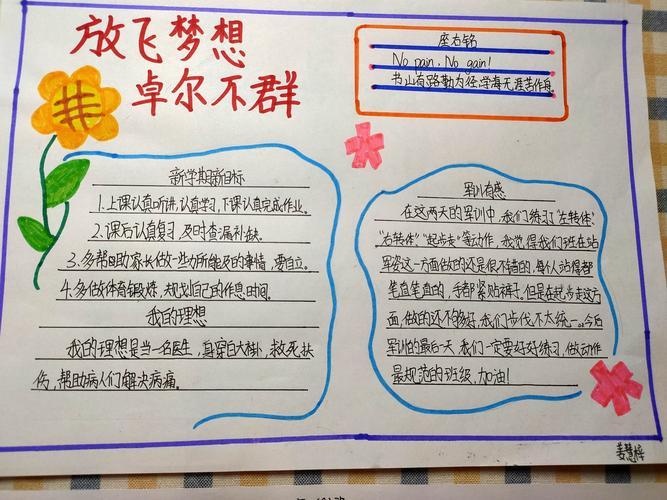 放飞梦想
卓尔不群
座右铭
No pain, No gain!
书山有路勤为径,学海无涯苦作舟
新学期新目标
1.上课认真听讲,认真学习,下课认真完成作业。
2.课后认真复习,及时查漏补缺。
3.多帮助家长做一些力所能及的事情,要自立。
4.多做体育锻炼,规划自己的作息时间。
我的理想
我的理想是当一名医生,身穿白大褂,救死扶
伤,帮助病人们解决病痛。
军训有感
在这两天的军训中,我们练习了“左转体”、
“右转体”、“起步走”等动作,我觉得我们班在站
军姿这一方面做的还是很不错的,每个人站得都
笔直笔直的,手都紧贴裤子。但是在起步走这方
面,做的还不够好,我们步伐不太统一。今后
军训的最后一天,我们一定要好好练习,做动作
最规范的班级,加油!
姜慧梓